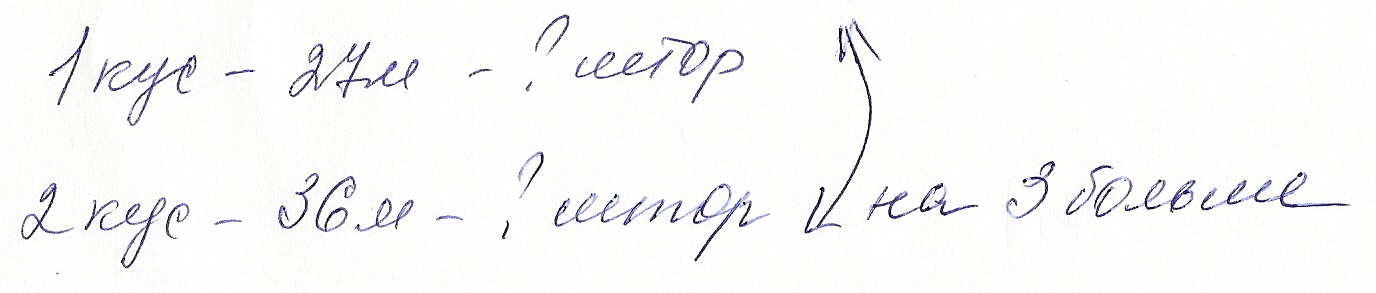 1 кус - 27м - ? штор
2 кус - 36м - ? штор на 3 больше